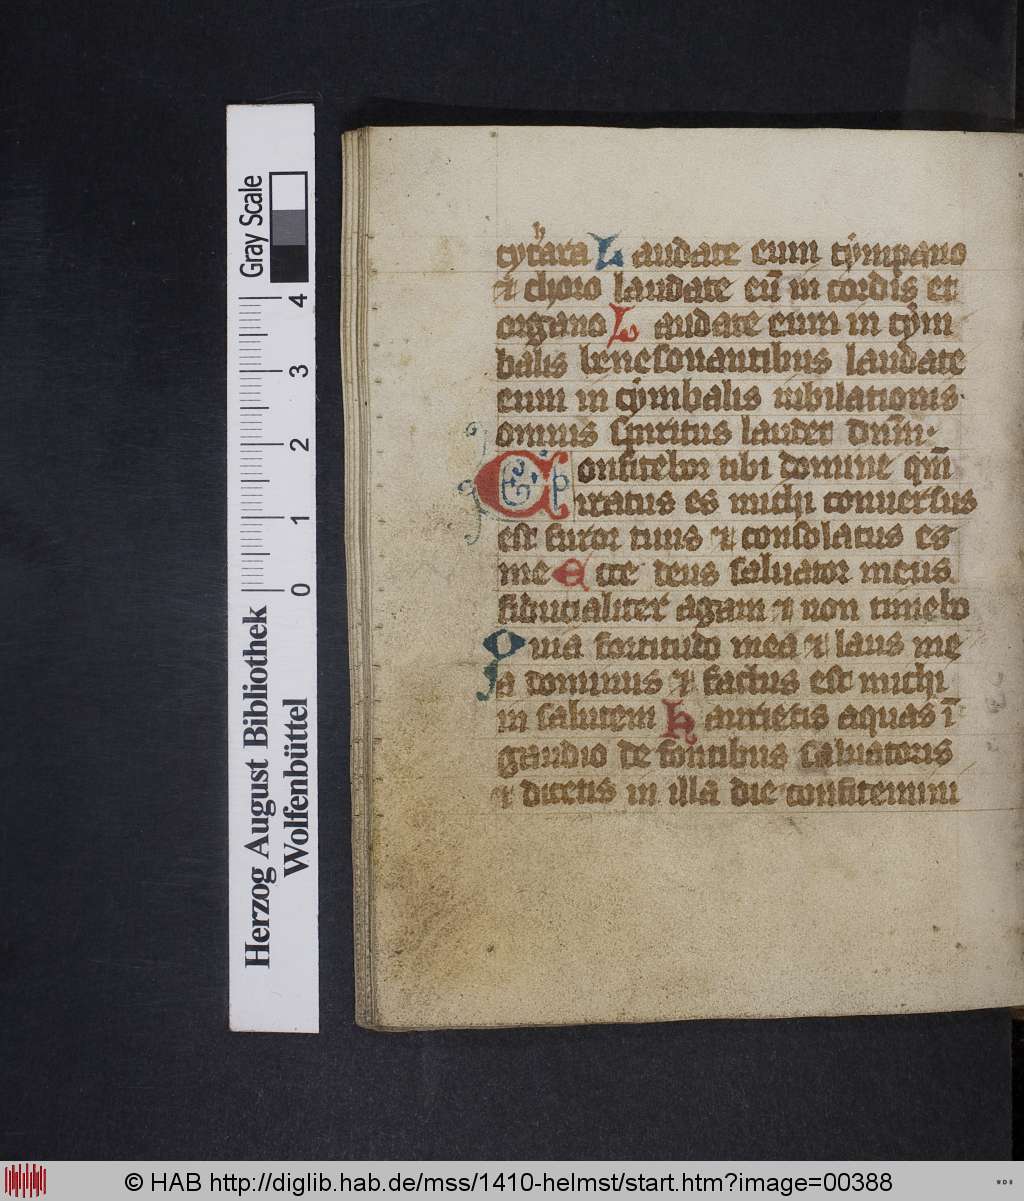 cythara Laudate eum tympano
et choro laudate eū in cordis et
organo Laudate eum in cym
balis benesonantibus laudate
eum in cymbalis iubilationis
omnis spiritus laudet dnm̄
Confitebor tibi domine qm̄
iratus es michi conuersus
est furor tuus et consolatus es
me Ecce deus saluator meus
fiducialiter agam et non timebo
Quia fortitudo mea et laus me
a dominus et factus est michi
in salutem haurietis aquas ī
gaudio de fontibus saluatoris
et dicetis in illa die confitemini
Gray Scale
0 1 2 3 4
Herzog August Bibliothek
Wolfenbüttel
© HAB http://diglib.hab.de/mss/1410-helmst/start.htm?image=00388